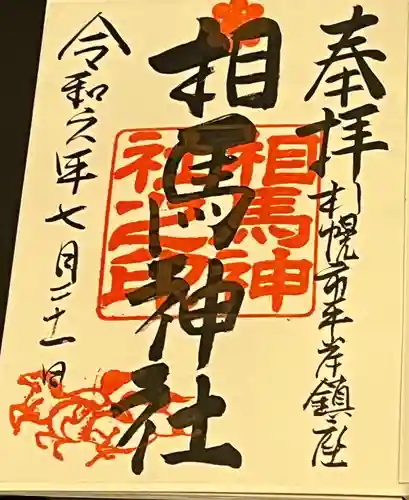 奉拝
札幌市平岸鎮座
相馬神社
相馬神
社之印
令和六年七月二十一日